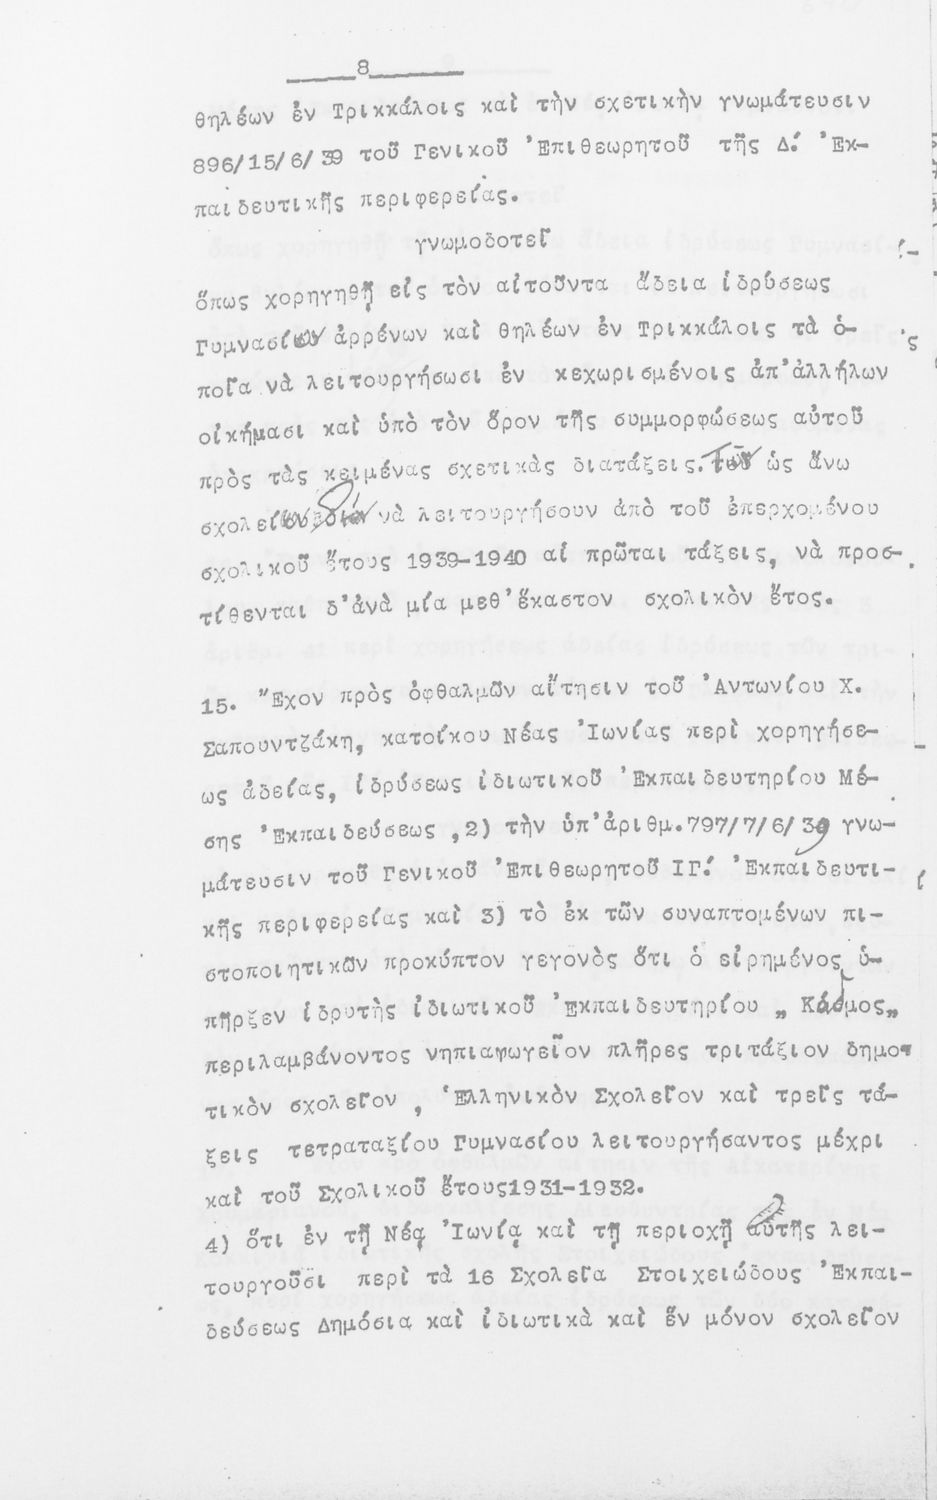 8
θηλέων ἐν Τρικκάλοις καὶ τὴν σχετικὴν γνωμάτευσιν
896/15/6/39 τοῦ Γενικοῦ Ἐπιθεωρητοῦ τῆς Δ΄. Ἐκ-
παιδευτικῆς περιφερείας.
γνωμοδοτεῖ
ὅπως χορηγηθῇ εἰς τὸν αἰτοῦντα ἄδεια ἱδρύσεως
Γυμνασίων ἀρρένων καὶ θηλέων ἐν Τρικκάλοις τὰ ὁ-
ποῖα νὰ λειτουργήσωσι ἐν κεχωρισμένοις ἀπ'ἀλλήλων
οἰκήμασι καὶ ὑπὸ τὸν ὅρον τῆς συμμορφώσεως αὐτοῦ
πρὸς τὰς κειμένας σχετικὰς διατάξεις. Τῶν ὡς ἄνω
σχολείων νὰ λειτουργήσουν ἀπὸ τοῦ ἐπερχομένου
σχολικοῦ ἔτους 1939-1940 αἱ πρῶται τάξεις, νὰ προσ-
τίθενται δ'ἀνὰ μία μεθ'ἕκαστον σχολικὸν ἔτος.
15. Ἔχον πρὸς ὀφθαλμῶν αἴτησιν τοῦ Ἀντωνίου Χ.
Σαπουντζάκη, κατοίκου Νέας Ἰωνίας περὶ χορηγήσε-
ως ἀδείας, ἱδρύσεως ἰδιωτικοῦ Ἐκπαιδευτηρίου Μέ-
σης Ἐκπαιδεύσεως ,2) τὴν ὑπ'ἀριθμ.797/7/6/39 γνω-
μάτευσιν τοῦ Γενικοῦ Ἐπιθεωρητοῦ ΙΓ΄. Ἐκπαιδευτι-
κῆς περιφερείας καὶ 3) τὸ ἐκ τῶν συναπτομένων πι-
στοποιητικῶν προκύπτον γεγονὸς ὅτι ὁ εἰρημένος ὑ-
πῆρξεν ἱδρυτὴς ἰδιωτικοῦ Ἐκπαιδευτηρίου „ Κόσμος„
περιλαμβάνοντος νηπιαγωγεῖον πλῆρες τριτάξιον δημο-
τικὸν σχολεῖον , Ἑλληνικὸν Σχολεῖον καὶ τρεῖς τά-
ξεις τετραταξίου Γυμνασίου λειτουργήσαντος μέχρι
καὶ τοῦ Σχολικοῦ ἔτους1931-1932.
4) ὅτι ἐν τῇ Νέᾳ Ἰωνίᾳ καὶ τῇ περιοχῇ αὐτῆς λει-
τουργοῦσι περὶ τὰ 16 Σχολεῖα Στοιχειώδους Ἐκπαι-
δεύσεως Δημόσια καὶ ἰδιωτικὰ καὶ ἓν μόνον σχολεῖον